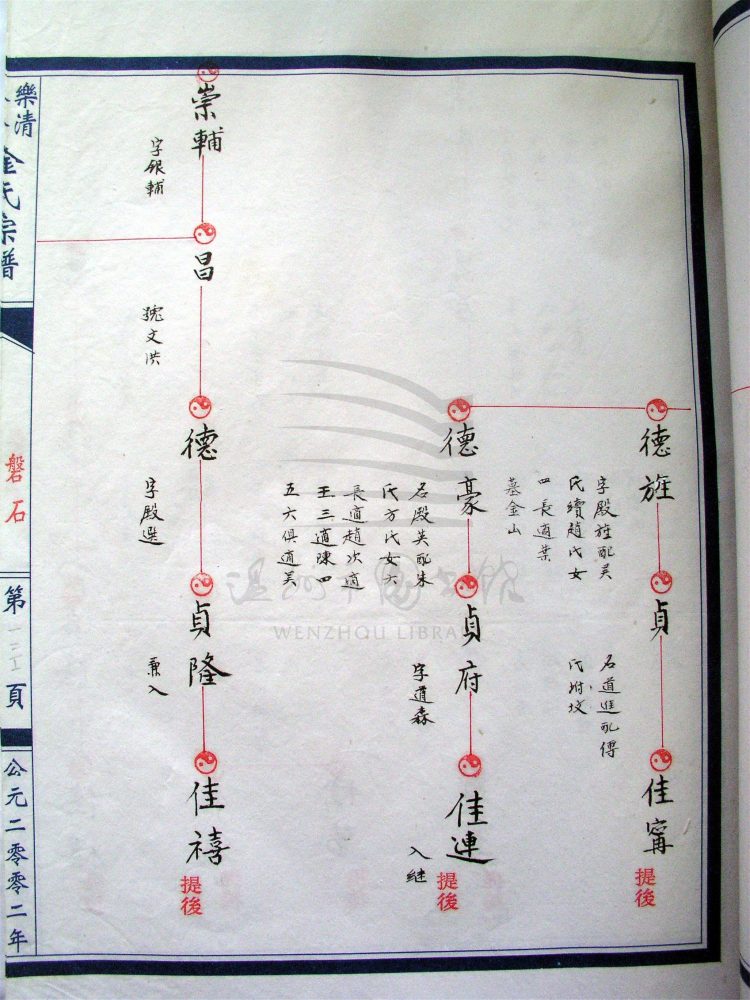 德旌
字殿旌配吴
氏續趙氏女
四長適葉
墓金山
貞
名道進配傅
氏坿坟
佳甯
提後
德豪
名殿英配朱
氏方氏女六
長適趙次適
王三適陳四
五六俱適吴
貞府
字道森
佳連
入継
提後
崇輔
字銀輔
昌
號文洪
德
字殿選
貞隆
兼入
佳禧
提後
樂清
金氏宗譜
磐石
第
頁
公元二零零二年
WENZHOU LIBRA